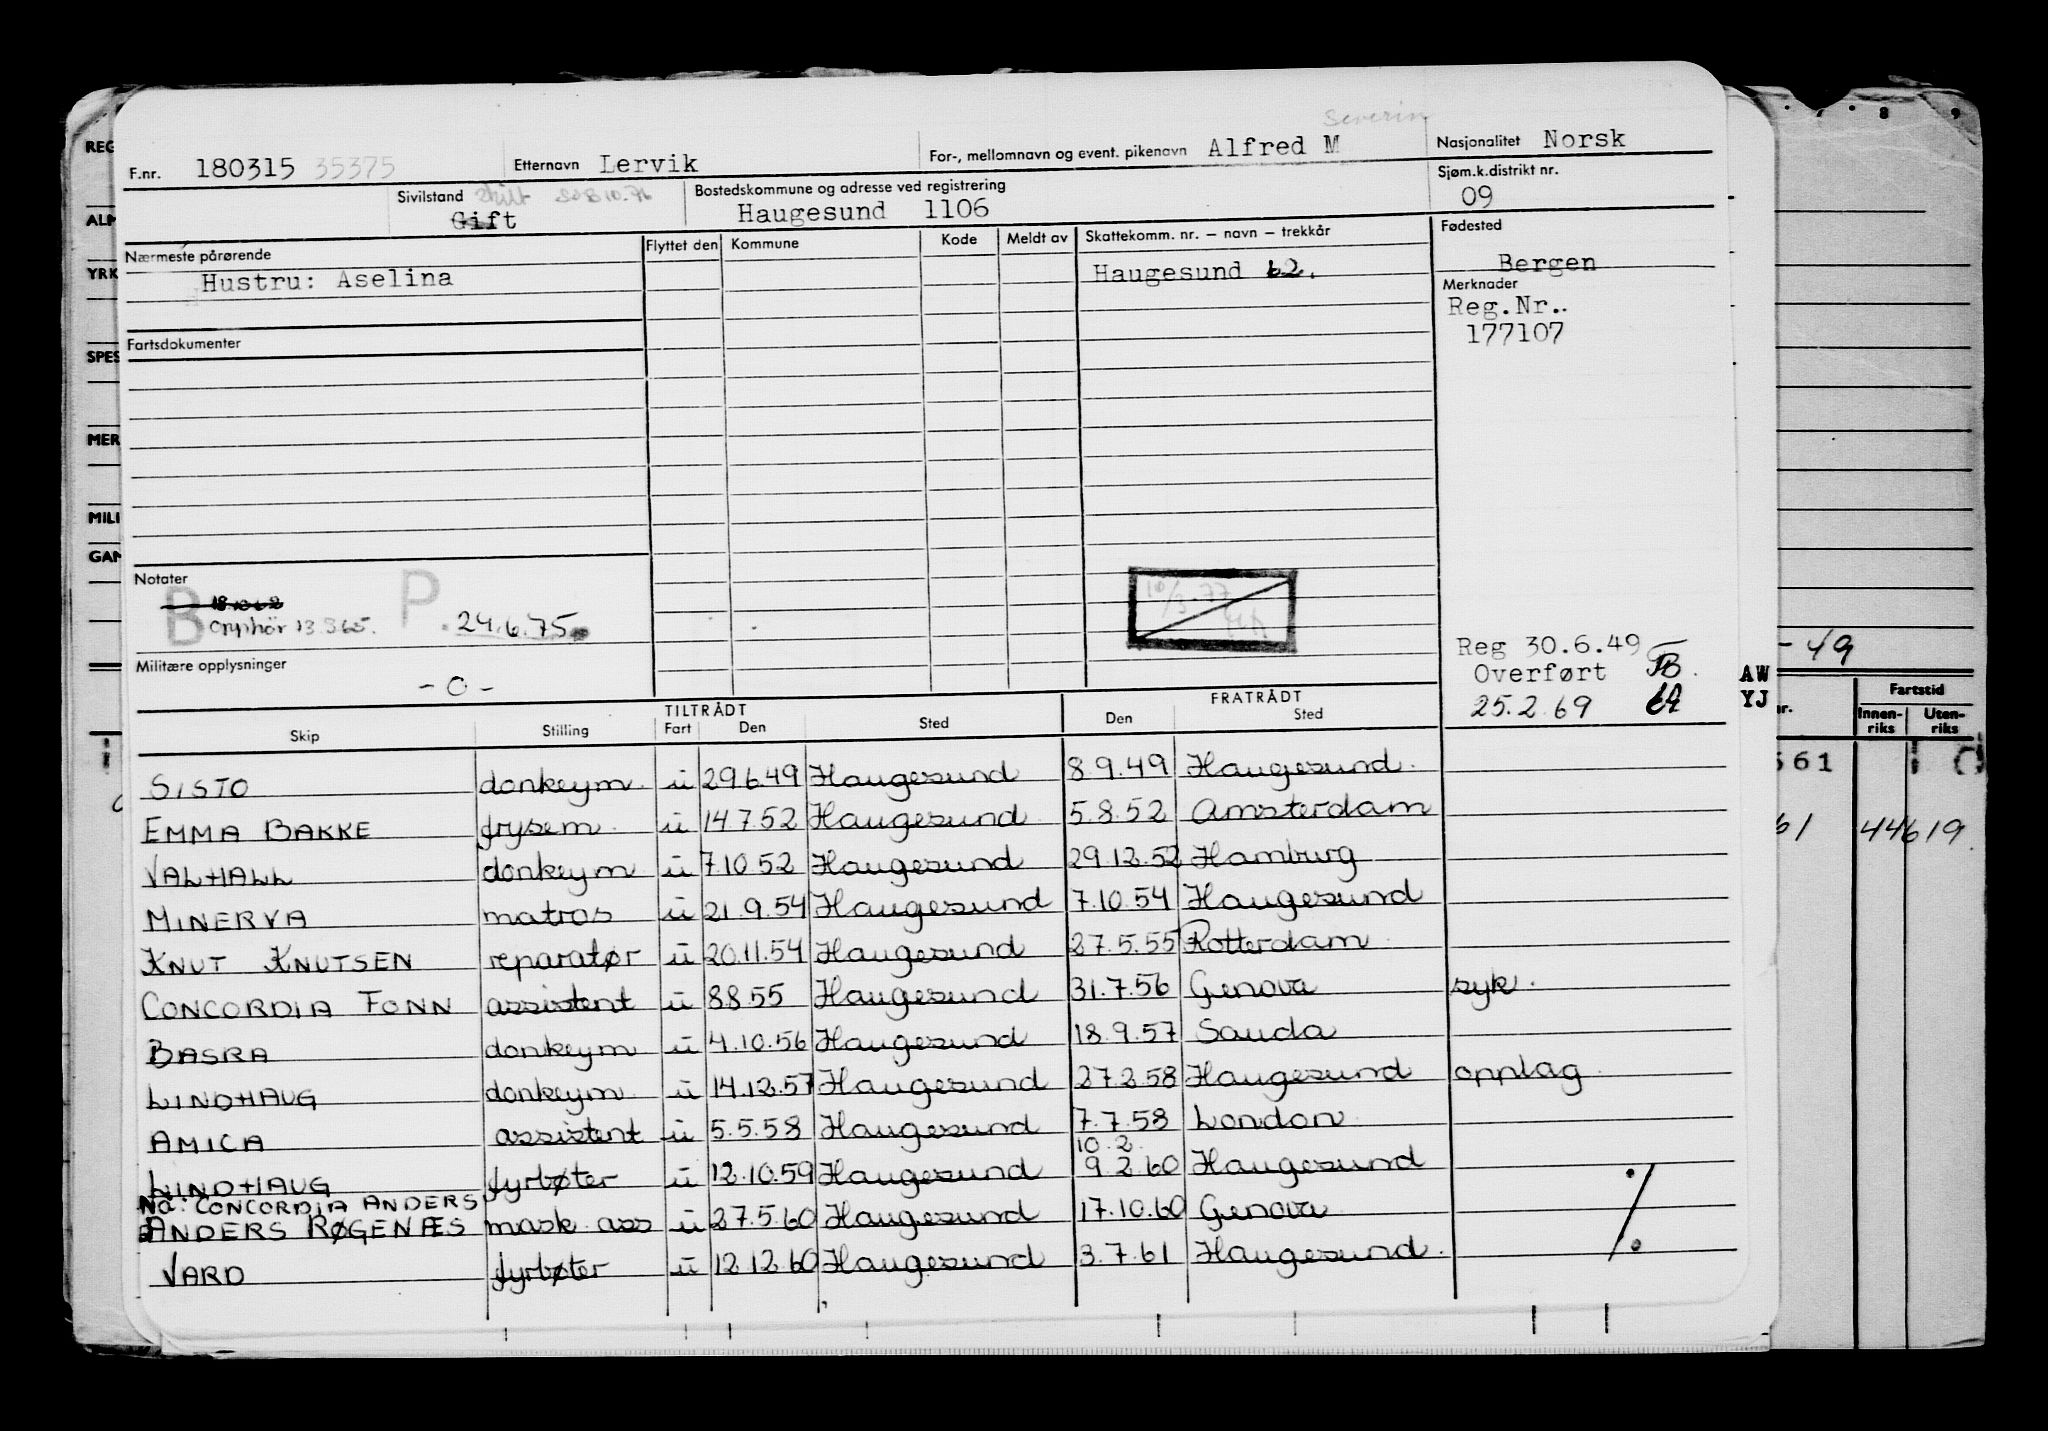 Severin
F.nr. 180315 35375 Etternavn Lervik For-, mellomnavn og event. pikenavn Alfred M Nasjonalitet Norsk
Sivilstand Gift skilt Bostedskommune og adresse ved registrering Haugesund 1106 Sjøm.k.distrikt nr. 09
Nærmeste pårørende Flyttet den Kommune Kode Meldt av Skattekomm. nr. – navn – trekkår Fødested
Hustru: Aselina Haugesund 62. Bergen
Merknader
Reg.Nr..
177107
Fartsdokumenter
Notater
B 18.10.62 P
opphør 13.3.65. 24.6.75
10/3.77
Militære opplysninger
- 0 -
Reg 30.6.49
Overført
25.2.69
AW
YJ
TILTRÅDT FRATRÅDT
Skip Stilling Fart Den Sted Den Sted
SISTO donkeym. u 29.6.49 Haugesund 8.9.49 Haugesund.
EMMA BAKKE frysem. u 14.7.52 Haugesund 5.8.52 Amsterdam
VALHALL donkeym u 7.10.52 Haugesund 29.12.52 Hamburg
MINERVA matros u 21.9.54 Haugesund 7.10.54 Haugesund
KNUT KNUTSEN reparatør u 20.11.54 Haugesund 27.5.55 Rotterdam
CONCORDIA FONN assistent u 8.8.55 Haugesund 31.7.56 Genova syk.
BASRA donkeym u 4.10.56 Haugesund 18.9.57 Sauda
LINDHAUG donkeym u 14.12.57 Haugesund 27.2.58 Haugesund opplag
AMICA assistent u 5.5.58 Haugesund 7.7.58 London
10.2
LINDHAUG fyrbøter u 12.10.59 Haugesund 9.2.60 Haugesund
Nå: CONCORDIA ANDERS
ANDERS RØGENÆS mask. ass u 27.5.60 Haugesund 17.10.60 Genova
VARD fyrbøter u 12.12.60 Haugesund 3.7.61 Haugesund.
./.
REG
ALM
YRK
SPES
MER
MILI
GAN
8 9
- 49
Fartstid
nr. Innen-riks Uten-riks
561
61 44619